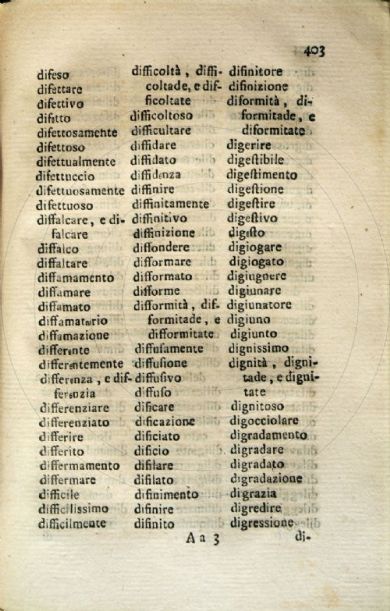 403
difeso
difettare
difettivo
difetto
difettosamente
difettoso
difettualmente
difettuccio
difettuosamente
difettuoso
diffalcare, e di-
falcare
diffalco
diffaltare
diffamamento
diffamare
diffamato
diffamatorio
diffamazione
differente
differentemente
differenza, e dif-
ferenzia
differenziare
differenziato
differire
differito
differmamento
differmare
difficile
difficilissimo
difficilmente
difficoltà, diffi-
coltade, e dif-
ficoltate
difficoltoso
difficultare
diffidare
diffidato
diffidenza
diffinire
diffinitamente
diffinitivo
diffinizione
diffondere
difformare
difformato
difforme
difformità, dif-
formitade, e
difformitate
diffusamente
diffusione
diffusivo
diffuso
dificare
dificazione
dificiato
dificio
difilare
difilato
difinimento
difinire
difinito
difinitore
difinizione
diformità, di-
formitade, e
diformitate
digerire
digestibile
digestimento
digestione
digestire
digestivo
digesto
digiogare
digiogato
digiugnere
digiunare
digiunatore
digiuno
digiunto
dignissimo
dignità, digni-
tade, e digni-
tate
dignitoso
digocciolare
digradamento
digradare
digradato
digradazione
digrazia
digredire
digressione
A a 3
di-